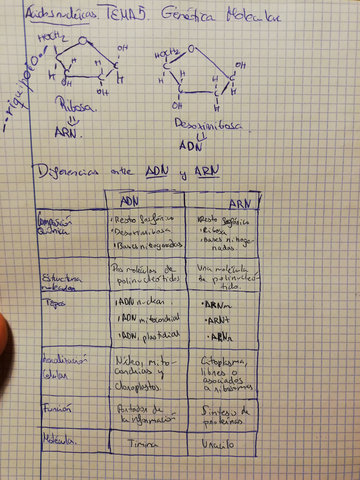 Ácidos nucleicos. TEMA 5. Genética Molecular
HOCH₂ O OH
C C
H H H H
C C
OH
Ribosa.
ARN
HOCH₂ O OH
C C
H H H H
C C
OH H
Desoxirribosa.
ADN
Diferencias entre ADN y ARN
ADN ARN
Composición química
• Resto fosfórico
• Desoxirribosa
• Bases nitrogenadas
• Resto fosfórico
• Ribosa
• Bases nitroge-
nadas
Estructura molecular
Dos moléculas de
polinucleótidos
Una molécula
de polinucleó-
tido
Tipos
• ADN nuclear
• ADN mitocondrial
• ADN plastidial
• ARNm
• ARNt
• ARNr
Localización celular
Núcleo, mito-
condrias y
cloroplastos
Citoplasma,
libres o
asociados
a ribosomas
Función
Portador de
la información
Síntesis de
proteínas
Molécula.
Timina
Uracilo